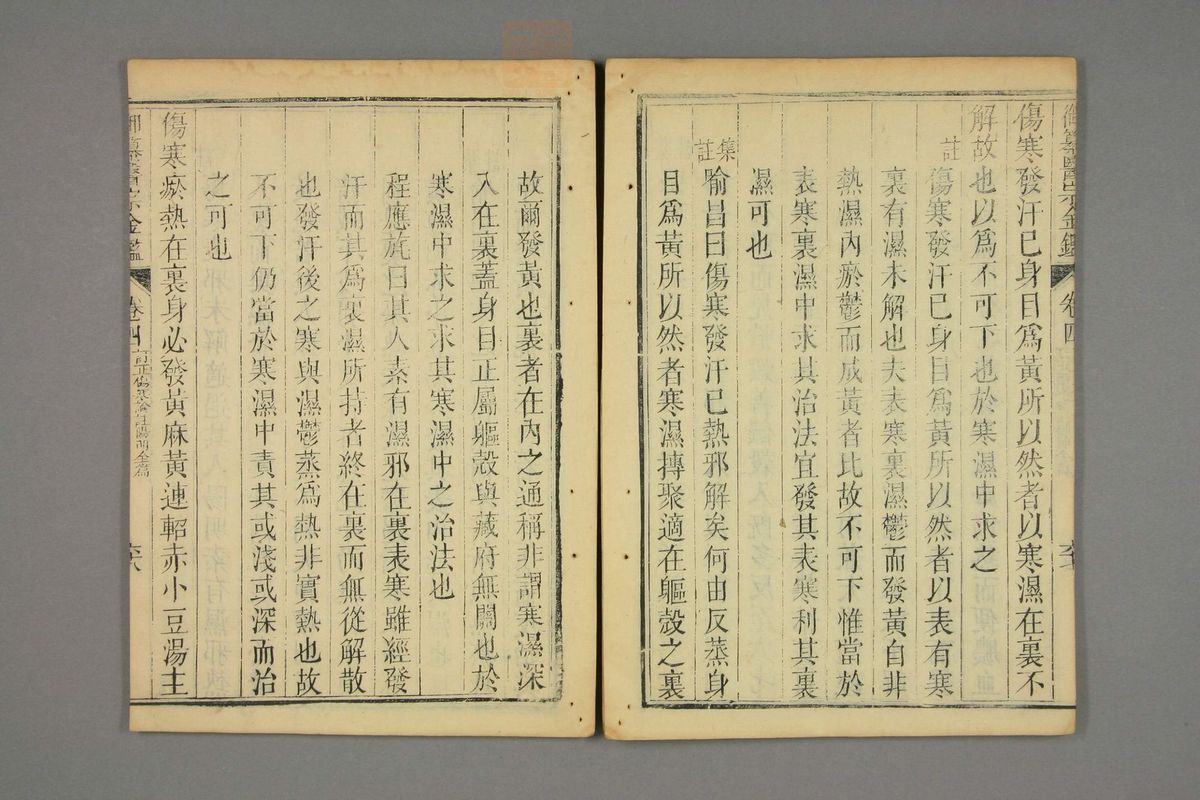 御纂醫宗金鑑 卷四
傷寒發汗已身目爲黃所以然者以寒濕在裏不
解故也以爲不可下也於寒濕中求之
註傷寒發汗已身目爲黃所以然者以表有寒
裏有濕未解也夫表寒裏濕鬱而發黃自非
熱濕內瘀鬱而成黃者比故不可下惟當於
表寒裏濕中求其治法宜發其表寒利其裏
濕可也
集註喻昌曰傷寒發汗已熱邪解矣何由反蒸身
目爲黃所以然者寒濕摶聚適在軀殼之裏
故爾發黃也裏者在內之通稱非謂寒濕深
入在裏蓋身目正屬軀殼與藏府無關也於
寒濕中求之求其寒濕中之治法也
程應旄曰其人素有濕邪在裏表寒雖經發
汗而其爲裏濕所持者終在裏而無從解散
也發汗後之寒與濕鬱蒸爲熱非實熱也故
不可下仍當於寒濕中責其或淺或深而治
之可也
傷寒瘀熱在裏身必發黃麻黃連軺赤小豆湯主
御纂醫宗金鑑 卷四 訂正傷寒論註陽明全篇 六